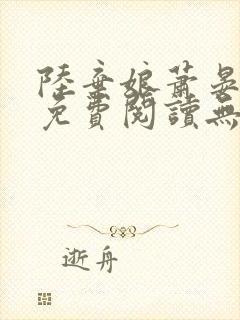 陸棄娘蕭晏
免費閱讀無
逝舟